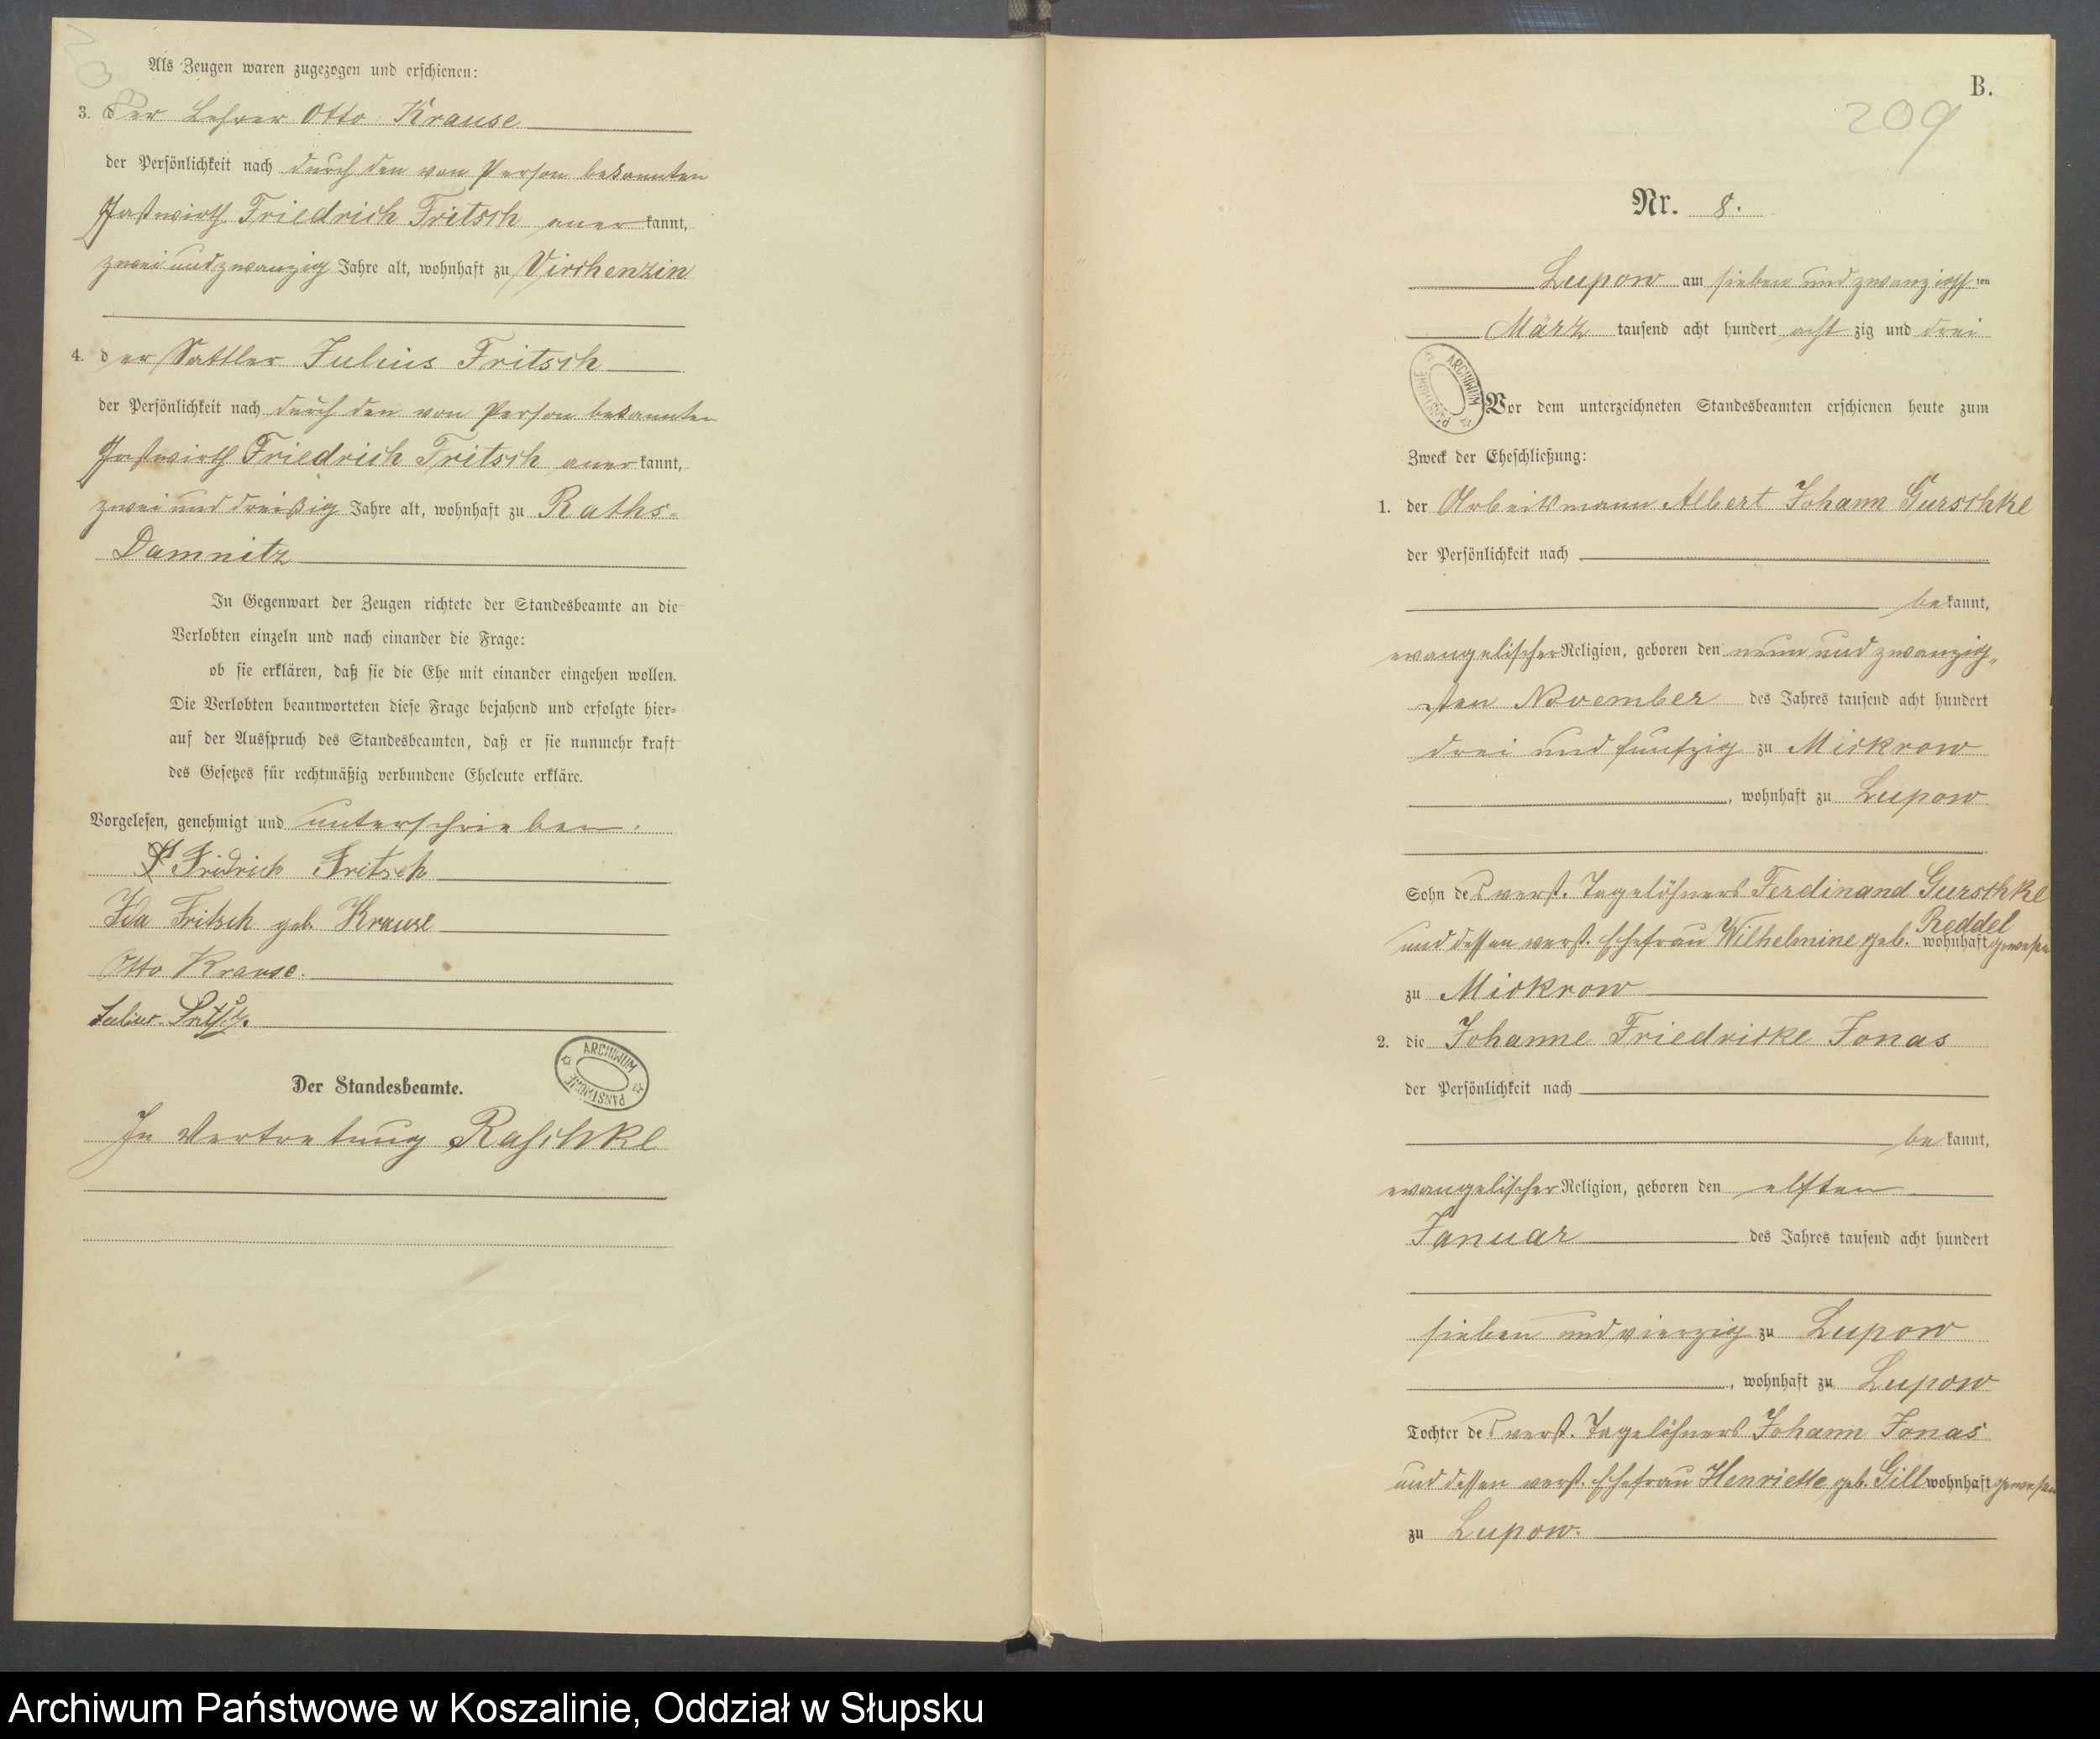 Als Zeugen waren zugezogen und erschienen:
3. der Lehrer Otto Krause
der Persönlichkeit nach durch den von Person bekannten
Gastwirth Friedrich Fritsch anerkannt,
zwei und zwanzig Jahre alt, wohnhaft zu Virchenzin
4. der Sattler Julius Fritsch
der Persönlichkeit nach durch den von Person bekannten
Gastwirth Friedrich Fritsch anerkannt,
zwei und dreißig Jahre alt, wohnhaft zu Raths-
Damnitz
In Gegenwart der Zeugen richtete der Standesbeamte an die
Verlobten einzeln und nach einander die Frage:
ob sie erklären, daß sie die Ehe mit einander eingehen wollen.
Die Verlobten beantworteten diese Frage bejahend und erfolgte hier-
auf der Ausspruch des Standesbeamten, daß er sie nunmehr kraft
des Gesetzes für rechtmäßig verbundene Eheleute erkläre.
Vorgelesen, genehmigt und unterschrieben.
Fridrich Fritsch
Ida Fritsch geb. Krause
Otto Krause.
Julius Fritsch.
ARCHIWUM PAŃSTWOWE
Der Standesbeamte.
In Vertretung Raschke
B.
209
Nr. 8.
Lupow am sieben und zwanzigsten
März tausend acht hundert achtzig und drei
ARCHIWUM PAŃSTWOWE
Vor dem unterzeichneten Standesbeamten erschienen heute zum
Zweck der Eheschließung:
1. der Arbeitsmann Albert Johann Gurschke
der Persönlichkeit nach
bekannt,
evangelischer Religion, geboren den neun und zwanzig-
sten November des Jahres tausend acht hundert
drei und fünfzig zu Mickrow
, wohnhaft zu Lupow
Sohn des verst. Tagelöhners Ferdinand Gurschke
und dessen verst. Ehefrau Wilhelmine geb. Reddel wohnhaft gewesen
zu Mickrow
2. die Johanne Friedricke Jonas
der Persönlichkeit nach
bekannt,
evangelischer Religion, geboren den elften
Januar des Jahres tausend acht hundert
sieben und vierzig zu Lupow
, wohnhaft zu Lupow
Tochter des verst. Tagelöhners Johann Jonas
und dessen verst. Ehefrau Henriette geb. Gill wohnhaft gewesen
zu Lupow.
Archiwum Państwowe w Koszalinie, Oddział w Słupsku